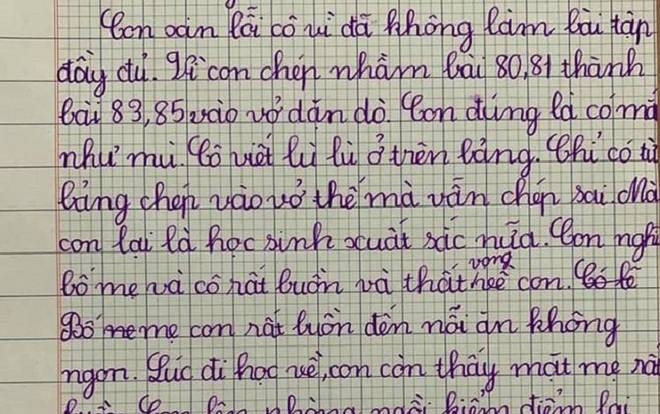 Con xin lỗi cô vì đã không làm bài tập
đầy đủ. Vì con chép nhầm bài 80,81 thành
bài 83,85 vào vở dặn dò. Con đúng là có mắ
như mù. Cô viết lù lù ở trên bảng. Chỉ có từ
bảng chép vào vở thế mà vẫn chép sai. Mà
con lại là học sinh xuất sắc nữa. Con nghĩ
bố mẹ và cô rất buồn và thất vọng về con. Có lẽ
Bố mẹ con rất buồn đến nỗi ăn không
ngon. Lúc đi học về, con còn thấy mặt mẹ rấ
buồ Con lên phòng ngồi kiểm điểm lại